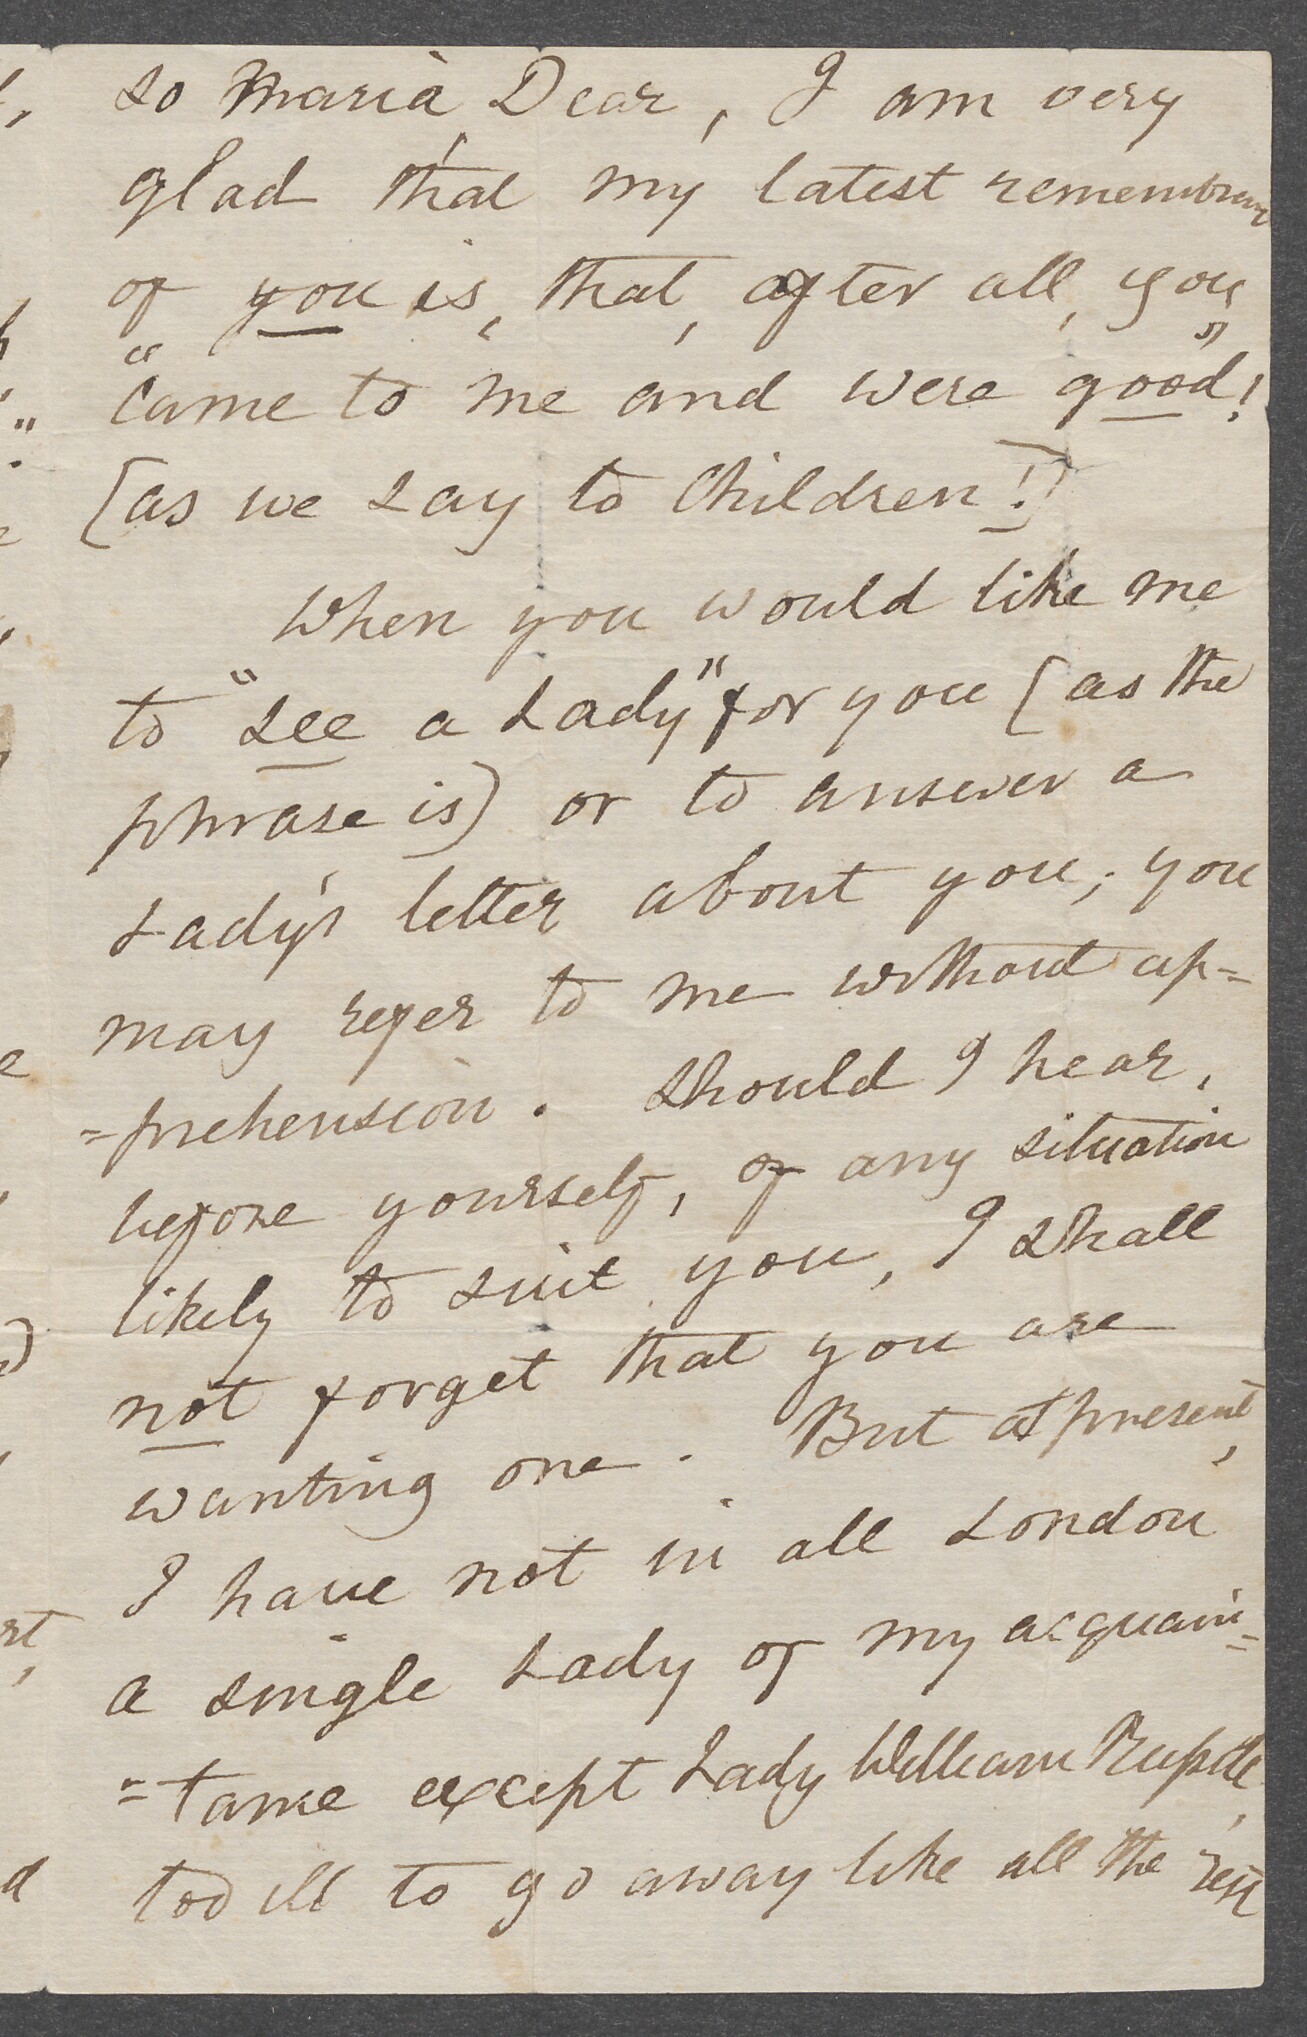 so Maria Dear, I am very
glad that my latest remembrance
of you is, that, after all, you
"came to me and were good"!
[as we say to Children!]
When you would like me
to "see a Lady" for you [as the
phrase is) or to answer a
Lady's letter about you; you
may refer to me without ap=
=prehension. Should I hear,
before yourself, of any situation
likely to suit you, I shall
not forget that you are
wanting one. But at present,
I have not in all London
a single Lady of my acquain=
=tance except Lady William Russell,
too ill to go away like all the rest